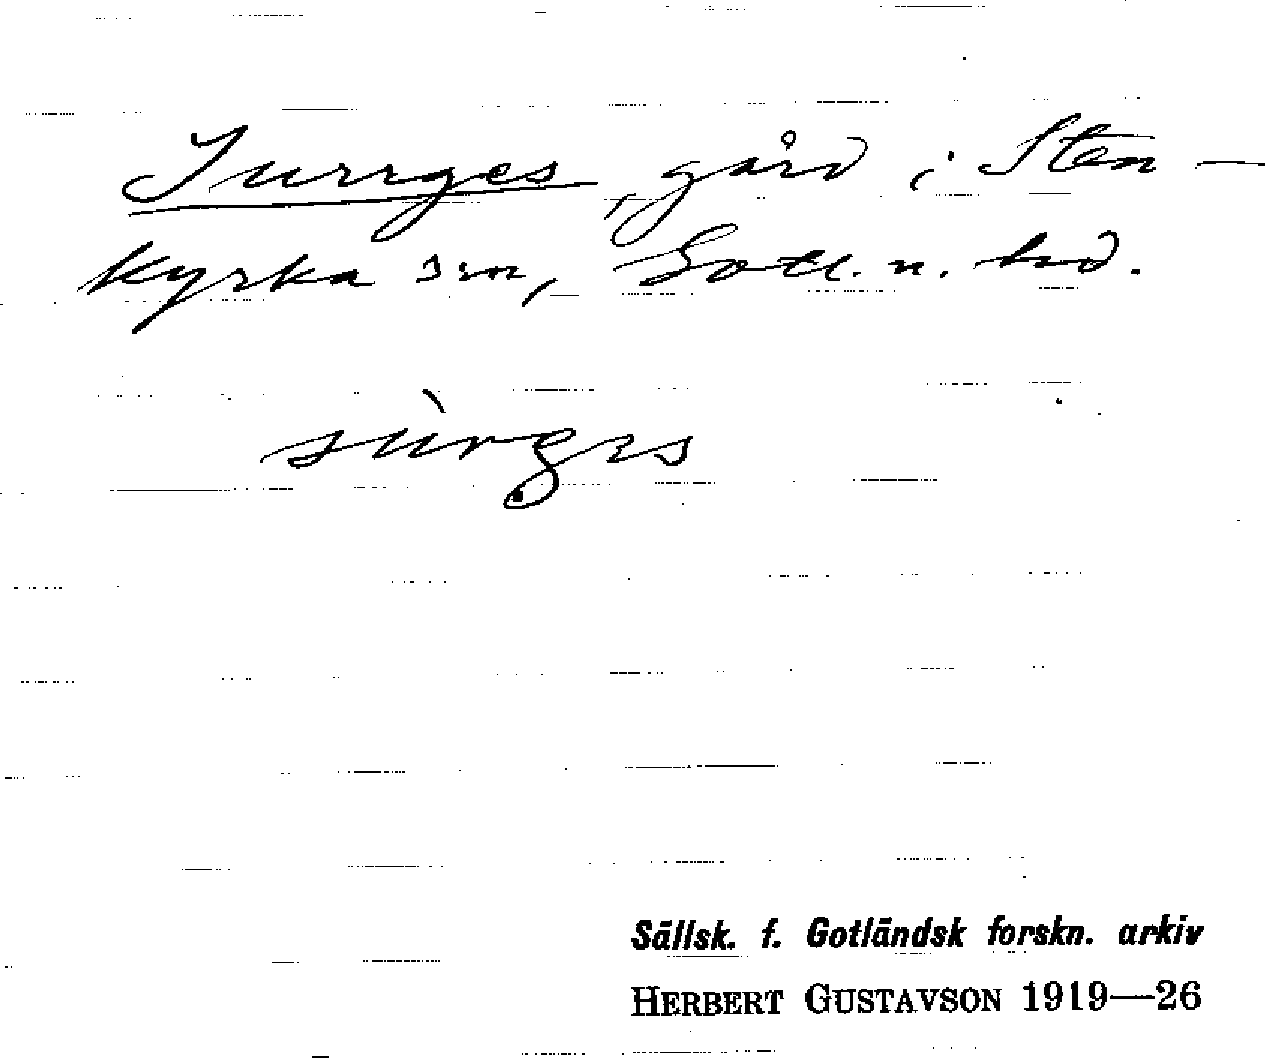 Surrges, gård i Sten-
kyrka sn, Gotl. n. hd.
sùrges
Sällsk. f. Gotländsk forskn. arkiv
HERBERT GUSTAVSON 1919—26